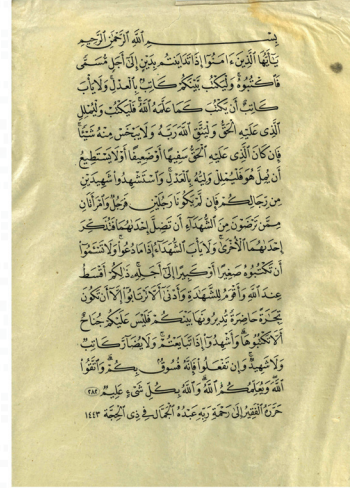 بِسْمِ اللَّهِ الرَّحْمَٰنِ الرَّحِيمِ
يَٰٓأَيُّهَا الَّذِينَ ءَامَنُوٓا۟ إِذَا تَدَايَنتُم بِدَيْنٍ إِلَىٰٓ أَجَلٍ مُّسَمًّى
فَاكْتُبُوهُ وَلْيَكْتُب بَّيْنَكُمْ كَاتِبٌۢ بِالْعَدْلِ وَلَا يَأْبَ
كَاتِبٌ أَن يَكْتُبَ كَمَا عَلَّمَهُ اللَّهُ فَلْيَكْتُبْ وَلْيُمْلِلِ
الَّذِى عَلَيْهِ الْحَقُّ وَلْيَتَّقِ اللَّهَ رَبَّهُ وَلَا يَبْخَسْ مِنْهُ شَيْـًٔا
فَإِن كَانَ الَّذِى عَلَيْهِ الْحَقُّ سَفِيهًا أَوْ ضَعِيفًا أَوْ لَا يَسْتَطِيعُ
أَن يُمِلَّ هُوَ فَلْيُمْلِلْ وَلِيُّهُ بِالْعَدْلِ وَاسْتَشْهِدُوا۟ شَهِيدَيْنِ
مِن رِّجَالِكُمْ فَإِن لَّمْ يَكُونَا رَجُلَيْنِ فَرَجُلٌ وَامْرَأَتَانِ
مِمَّن تَرْضَوْنَ مِنَ الشُّهَدَآءِ أَن تَضِلَّ إِحْدَىٰهُمَا فَتُذَكِّرَ
إِحْدَىٰهُمَا الْأُخْرَىٰ وَلَا يَأْبَ الشُّهَدَآءُ إِذَا مَا دُعُوا۟ وَلَا تَسْـَٔمُوٓا۟
أَن تَكْتُبُوهُ صَغِيرًا أَوْ كَبِيرًا إِلَىٰٓ أَجَلِهِ ذَٰلِكُمْ أَقْسَطُ
عِندَ اللَّهِ وَأَقْوَمُ لِلشَّهَٰدَةِ وَأَدْنَىٰٓ أَلَّا تَرْتَابُوٓا۟ إِلَّآ أَن تَكُونَ
تِجَٰرَةً حَاضِرَةً تُدِيرُونَهَا بَيْنَكُمْ فَلَيْسَ عَلَيْكُمْ جُنَاحٌ
أَلَّا تَكْتُبُوهَا وَأَشْهِدُوٓا۟ إِذَا تَبَايَعْتُمْ وَلَا يُضَآرَّ كَاتِبٌ
وَلَا شَهِيدٌ وَإِن تَفْعَلُوا۟ فَإِنَّهُ فُسُوقٌۢ بِكُمْ وَاتَّقُوا۟
اللَّهَ وَيُعَلِّمُكُمُ اللَّهُ وَاللَّهُ بِكُلِّ شَىْءٍ عَلِيمٌ ٢٨٢
حَرَّرَهُ الْفَقِيرُ إِلَىٰ رَحْمَةِ رَبِّهِ عَبْدُهُ الْجَمَّال فِي ذِي الْحِجَّة ١٤٤٣